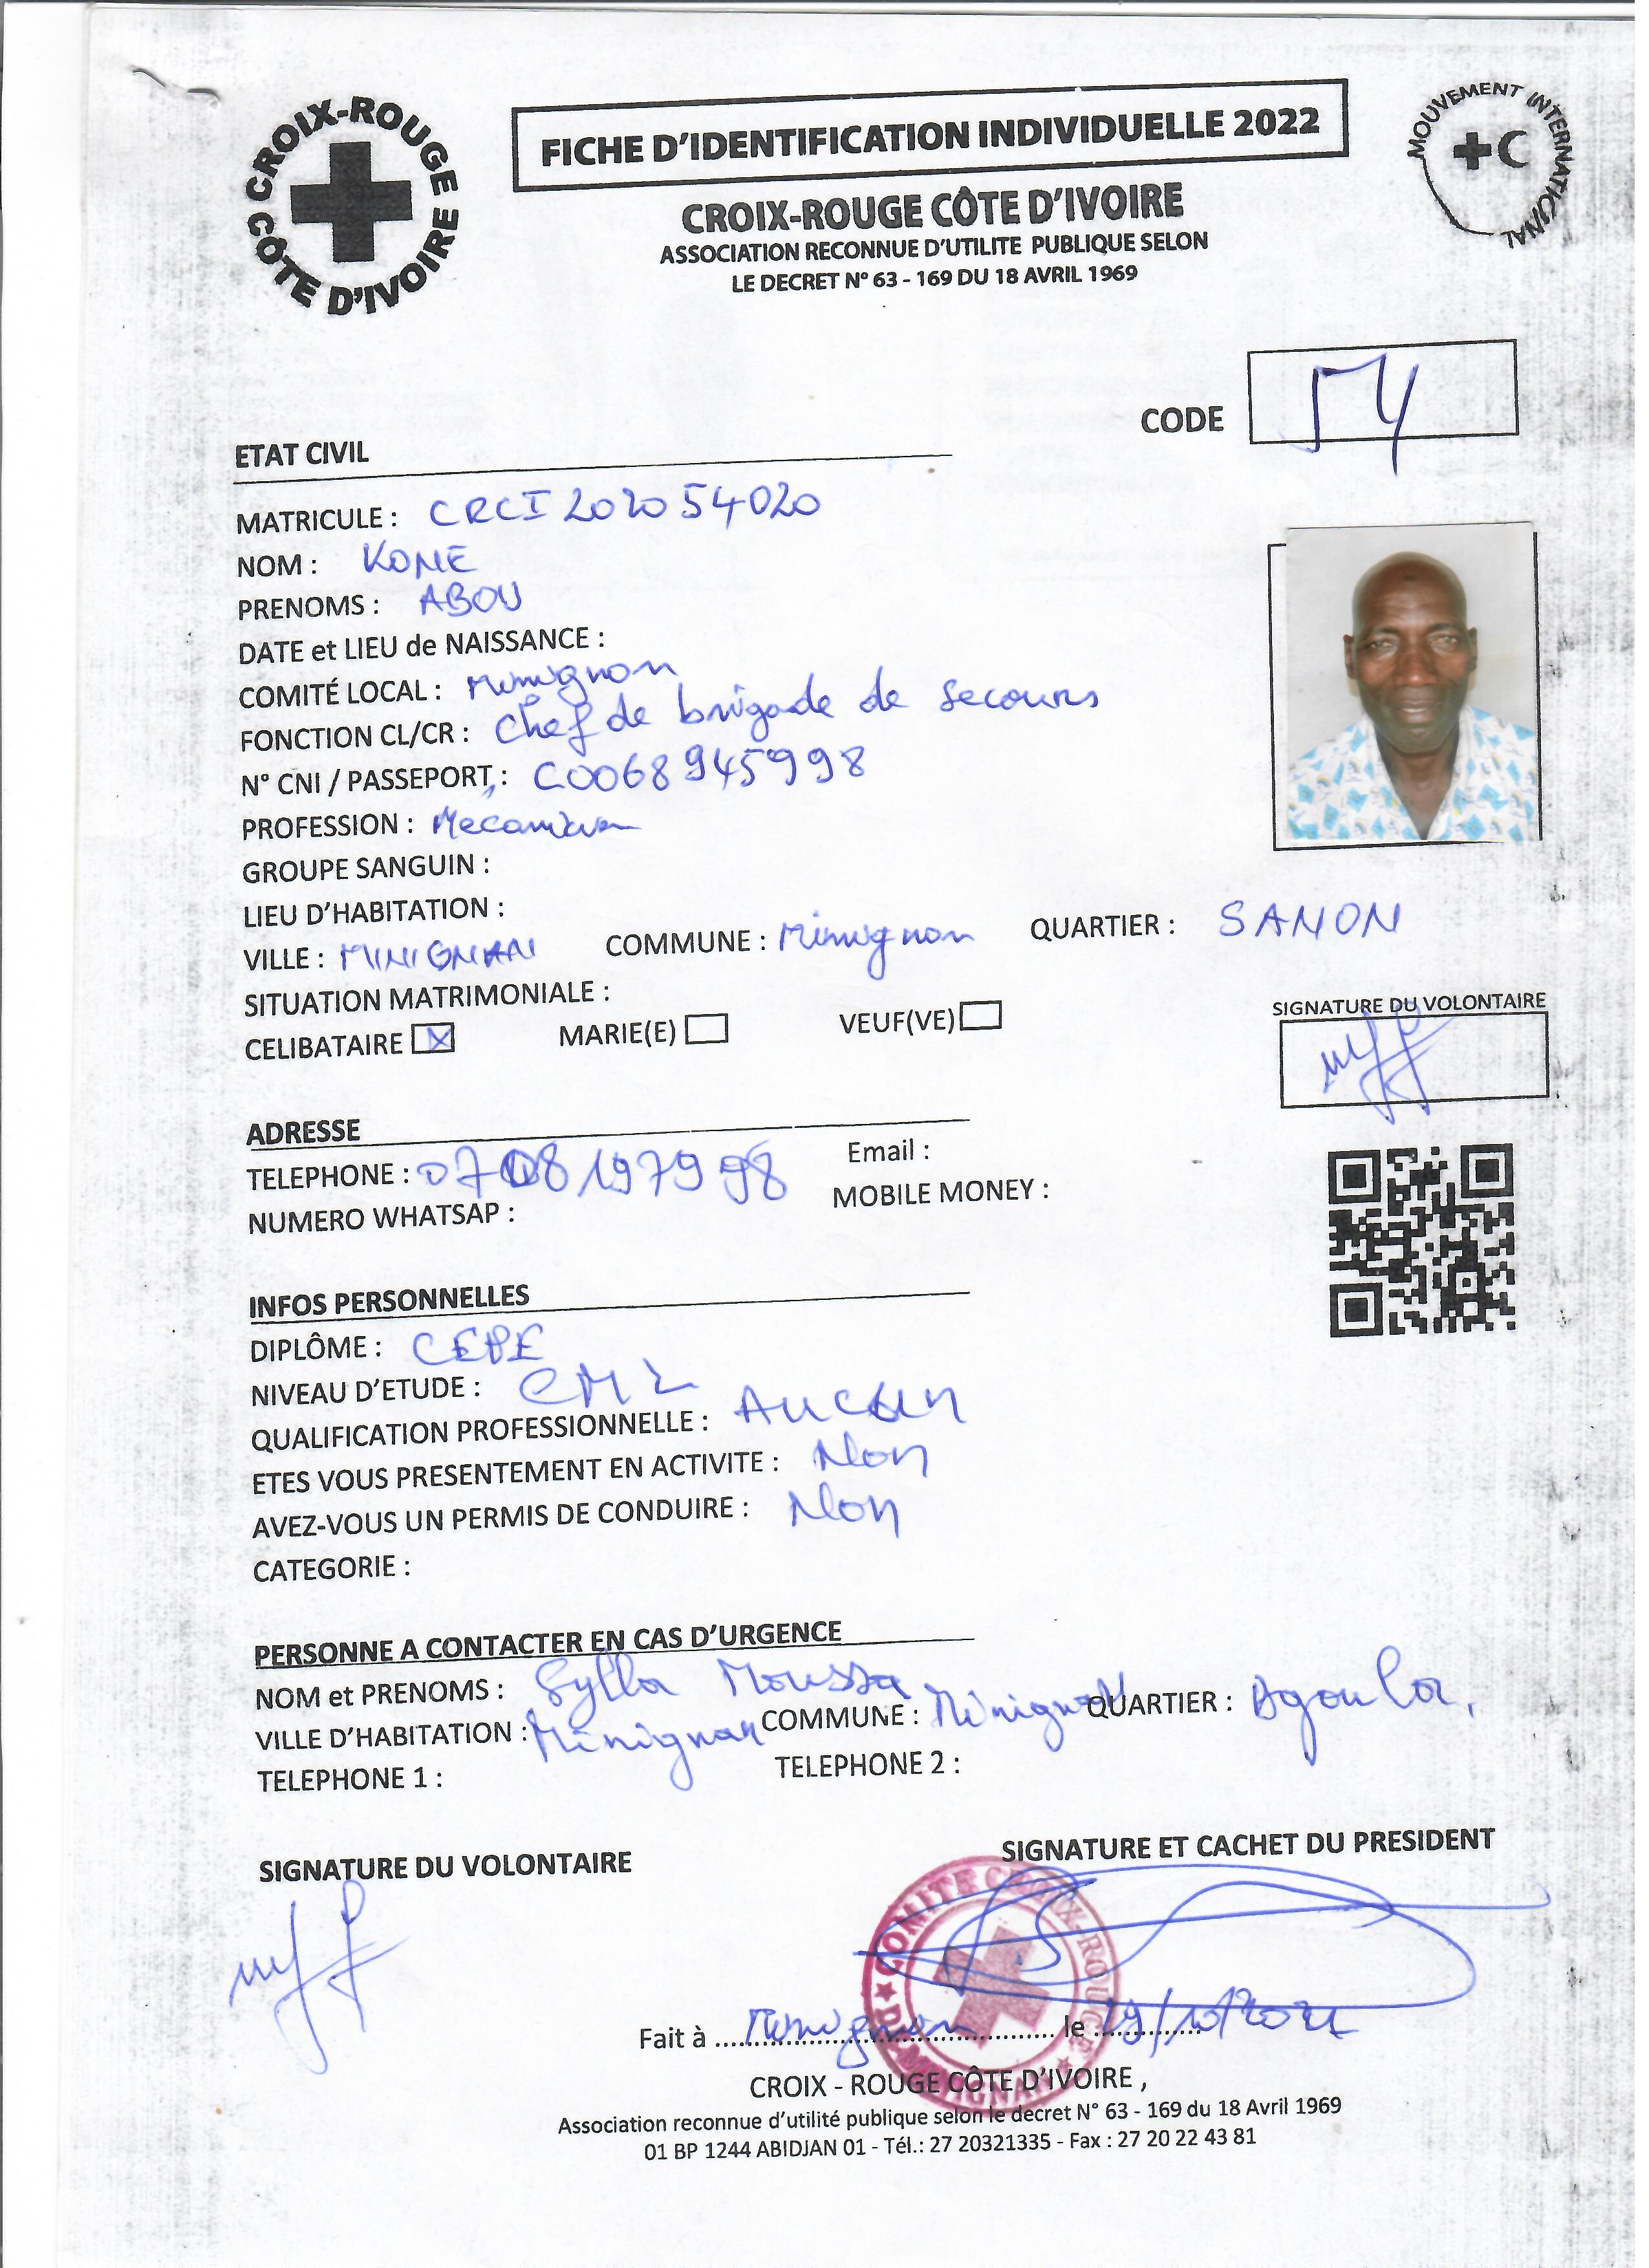 CROIX-ROUGE CÔTE D'IVOIRE
FICHE D'IDENTIFICATION INDIVIDUELLE 2022
MOUVEMENT INTERNATIONAL
CROIX-ROUGE CÔTE D'IVOIRE
ASSOCIATION RECONNUE D'UTILITE PUBLIQUE SELON
LE DECRET N° 63 - 169 DU 18 AVRIL 1969
CODE 54
ETAT CIVIL
MATRICULE : CRCI 202054020
NOM : KONE
PRENOMS : ABOU
DATE et LIEU de NAISSANCE :
COMITÉ LOCAL : Minignan
FONCTION CL/CR : Chef de brigade de secours
N° CNI / PASSEPORT : C0068945998
PROFESSION :
GROUPE SANGUIN :
LIEU D'HABITATION :
VILLE : MINIGNAN COMMUNE : Minignan QUARTIER : SANON
SITUATION MATRIMONIALE :
CELIBATAIRE X MARIE(E) VEUF(VE)
SIGNATURE DU VOLONTAIRE
ADRESSE
TELEPHONE : 0708197998 Email :
NUMERO WHATSAP : MOBILE MONEY :
INFOS PERSONNELLES
DIPLÔME : CEPE
NIVEAU D'ETUDE : CM2
QUALIFICATION PROFESSIONNELLE : Aucun
ETES VOUS PRESENTEMENT EN ACTIVITE : Non
AVEZ-VOUS UN PERMIS DE CONDUIRE : Non
CATEGORIE :
PERSONNE A CONTACTER EN CAS D'URGENCE
NOM et PRENOMS : Sylla Moussa
VILLE D'HABITATION : Minignan COMMUNE : Minignan QUARTIER :
TELEPHONE 1 : TELEPHONE 2 :
SIGNATURE DU VOLONTAIRE
SIGNATURE ET CACHET DU PRESIDENT
COMITE CROIX-ROUGE DE MINIGNAN
Fait à Minignan le
CROIX - ROUGE CÔTE D'IVOIRE ,
Association reconnue d'utilité publique selon le decret N° 63 - 169 du 18 Avril 1969
01 BP 1244 ABIDJAN 01 - Tél.: 27 20321335 - Fax : 27 20 22 43 81